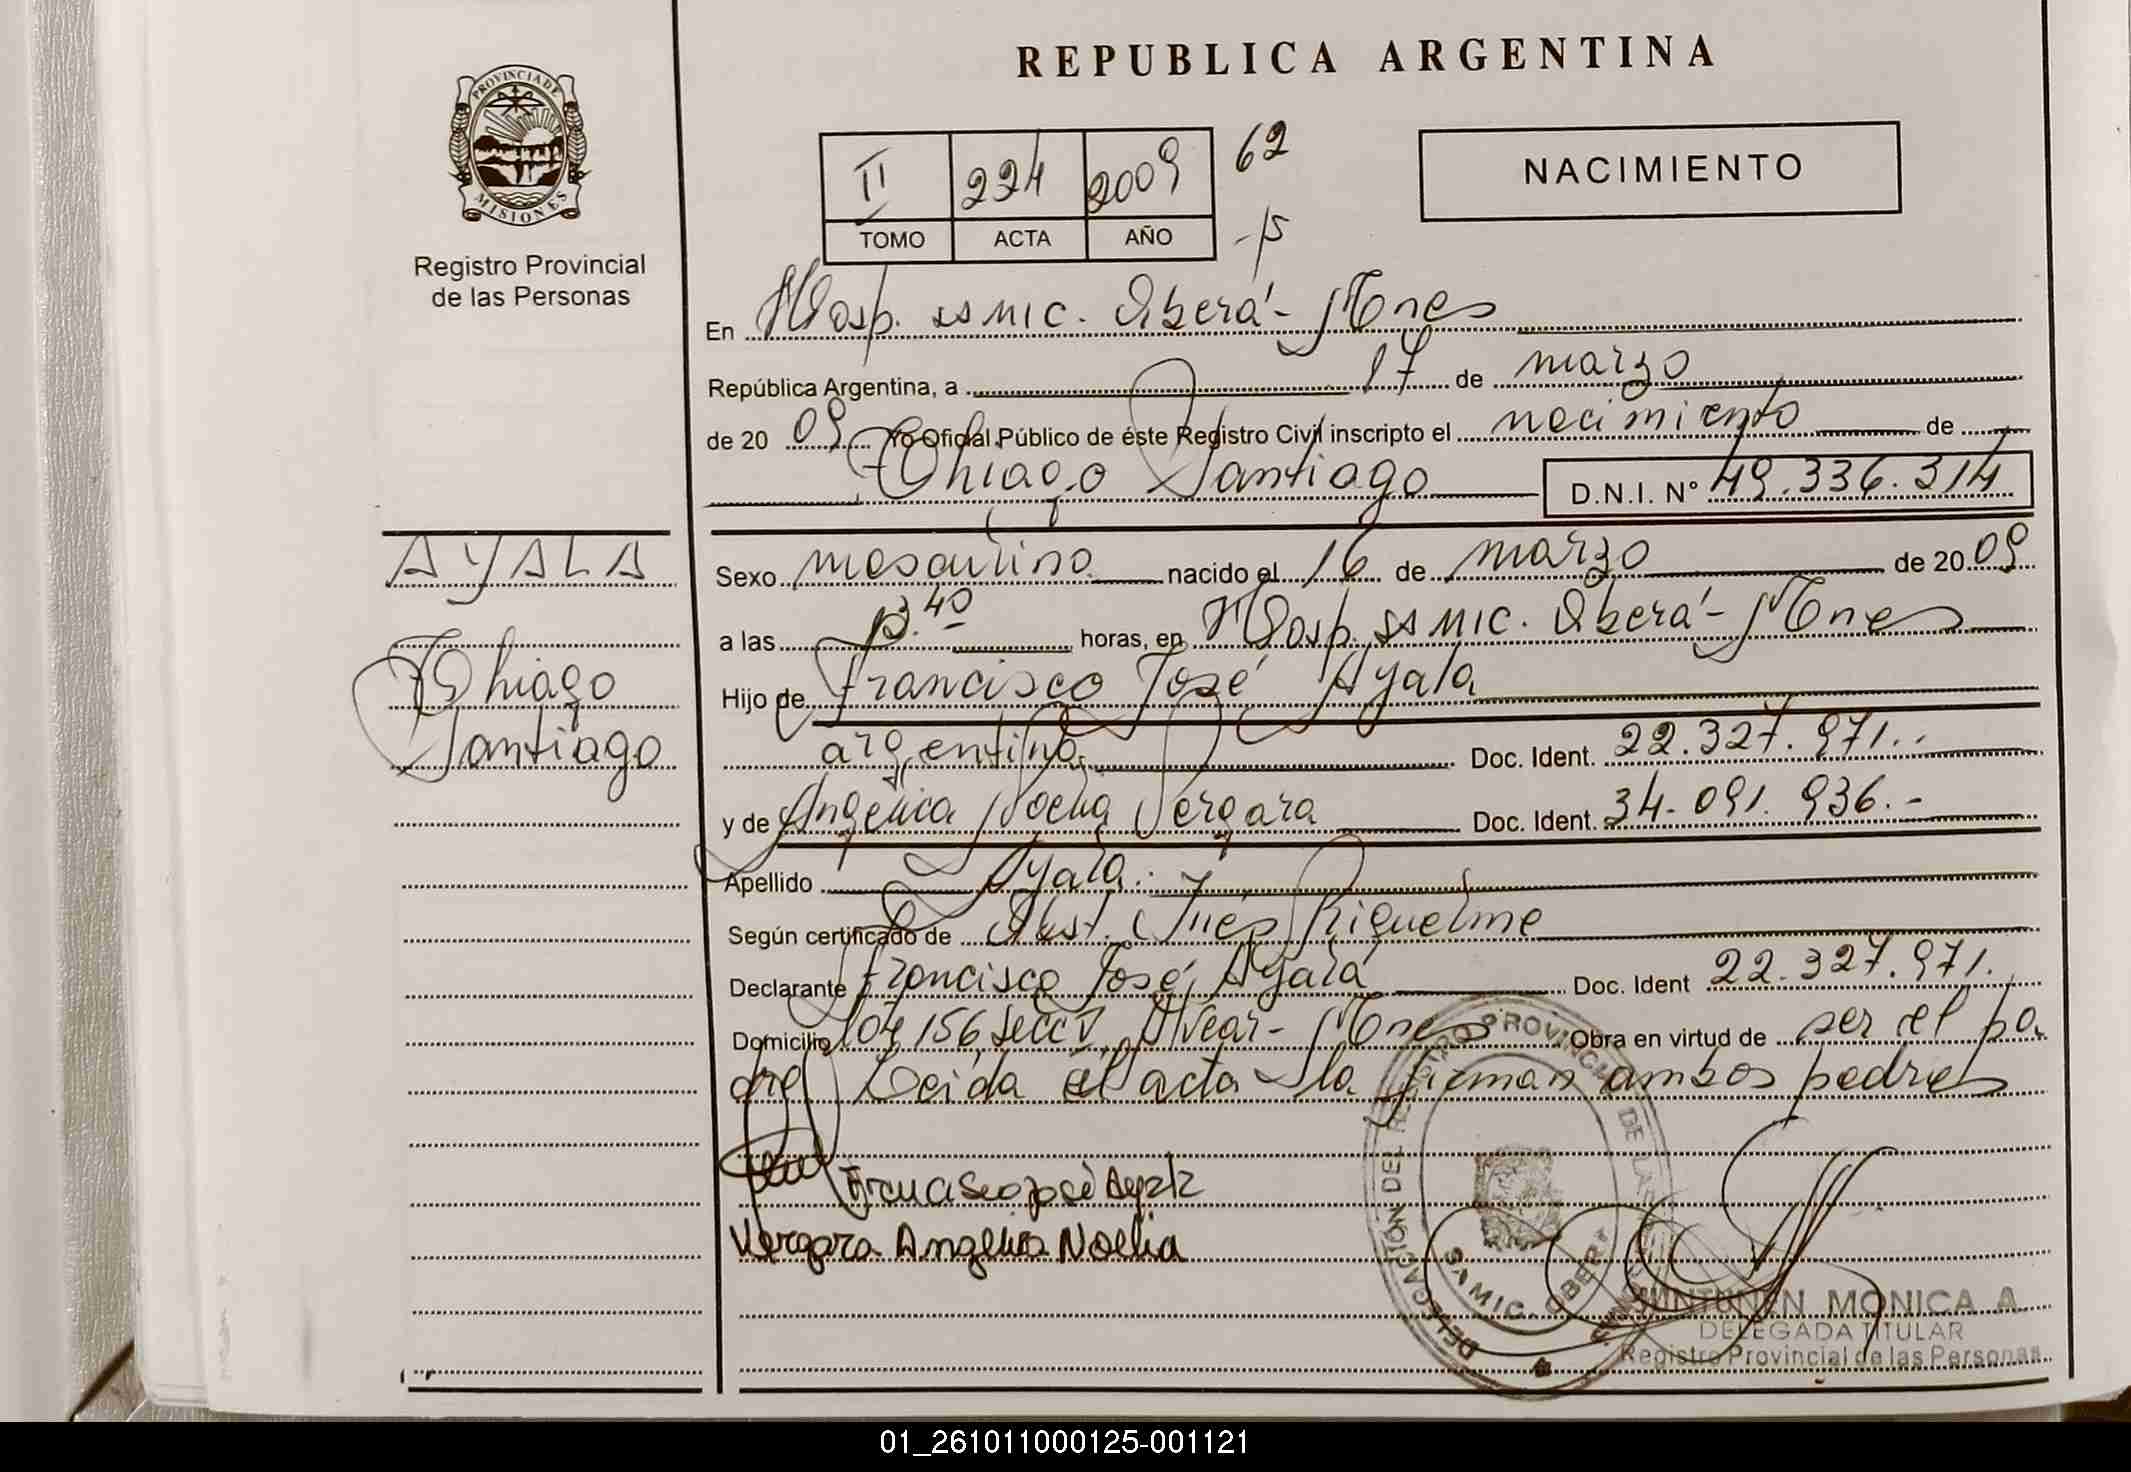 PROVINCIA DE
MISIONES
Registro Provincial
de las Personas
REPUBLICA ARGENTINA
II 224 2009 62
TOMO ACTA AÑO
NACIMIENTO
En Hosp. SAMIC. Oberá - Mnes
República Argentina, a 17 de marzo
de 20 09 Yo Oficial Público de éste Registro Civil inscripto el nacimiento de
Thiago Santiago D.N.I. N° 49.336.314
AYALA
Thiago
Santiago
Sexo masculino nacido el 16 de marzo de 20 09
a las 13.40 horas, en Hosp. SAMIC. Oberá - Mnes
Hijo de Francisco José Ayala
argentino Doc. Ident. 22.327.971.-
y de Angélica Noelia Vergara Doc. Ident. 34.091.936.-
Apellido Ayala.
Según certificado de Obst. Inés Riquelme
Declarante Francisco José Ayala Doc. Ident 22.327.971.
Domicilio 156 Secc V Alvear - Mnes Obra en virtud de ser el pa
dre Leída el acta la firman ambos padres
Francisco José Ayala
Vergara Angelica Noelia
DELEGACIÓN DEL REGISTRO PROVINCIAL DE LAS PERSONAS
SAMIC. OBERÁ
MONICA A.
DELEGADA TITULAR
Registro Provincial de las Personas
01_261011000125-001121